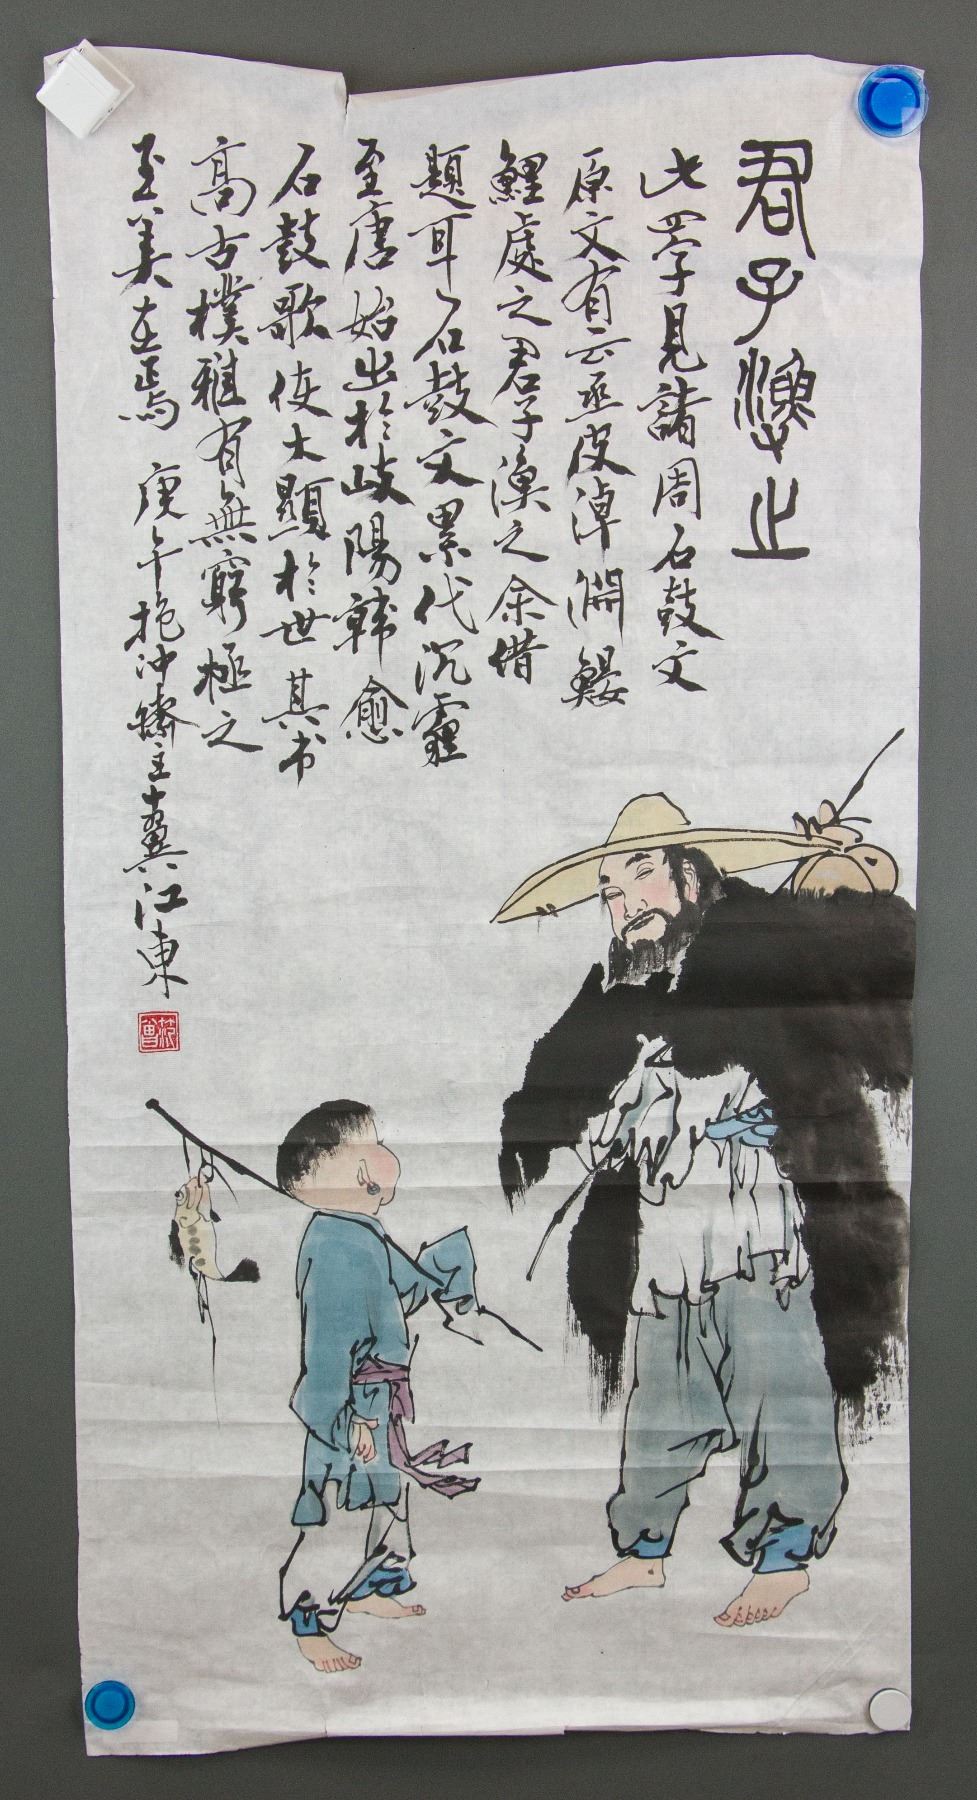 君子漁止
此四字見諸周石鼓文
原文有云丞皮淖淵鰋
鯉處之君子漁之余借
題耳石鼓文累代沉霾
至唐始出於岐陽韓愈
石鼓歌使大顯於世其书
高古樸雅有無窮極之
至美在焉 庚午抱冲齋主十翼江東